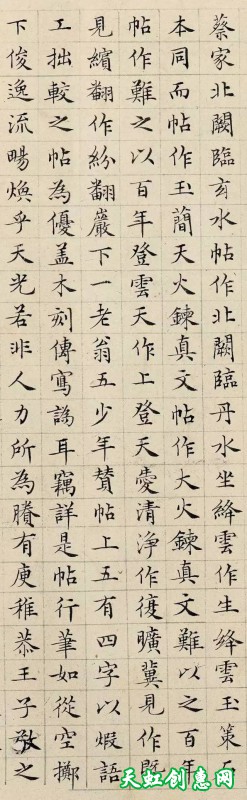 蔡家北闕臨玄水帖作北闕臨丹水坐絳雲作生絳雲玉策
本同而帖作玉簡天火鍊真文帖作大火鍊真文難以之百年
帖作難之以百年登雲天作上登天愛清淨作復曠冀見作既
見繽翻作紛翻巖下一老翁五少年贊帖上五有四字以煆語
工拙較之帖為優蓋木刻傳寫譌耳竊詳是帖行筆如從空擲
下俊逸流暢煥乎天光若非人力所為賸有庾稚恭王子敬之
天虹创意网